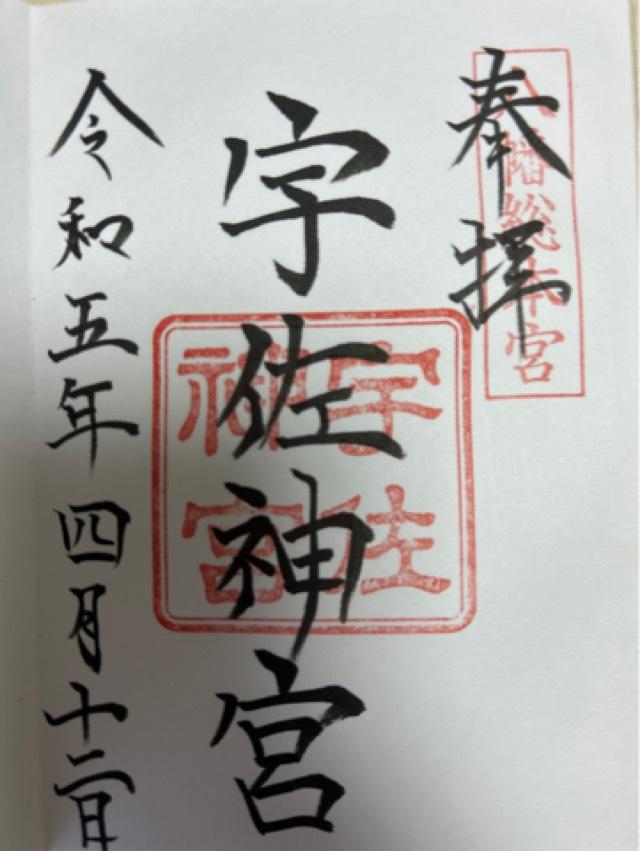 奉拝
八幡総本宮
宇佐神宮
宇佐神宮
令和五年四月十二日